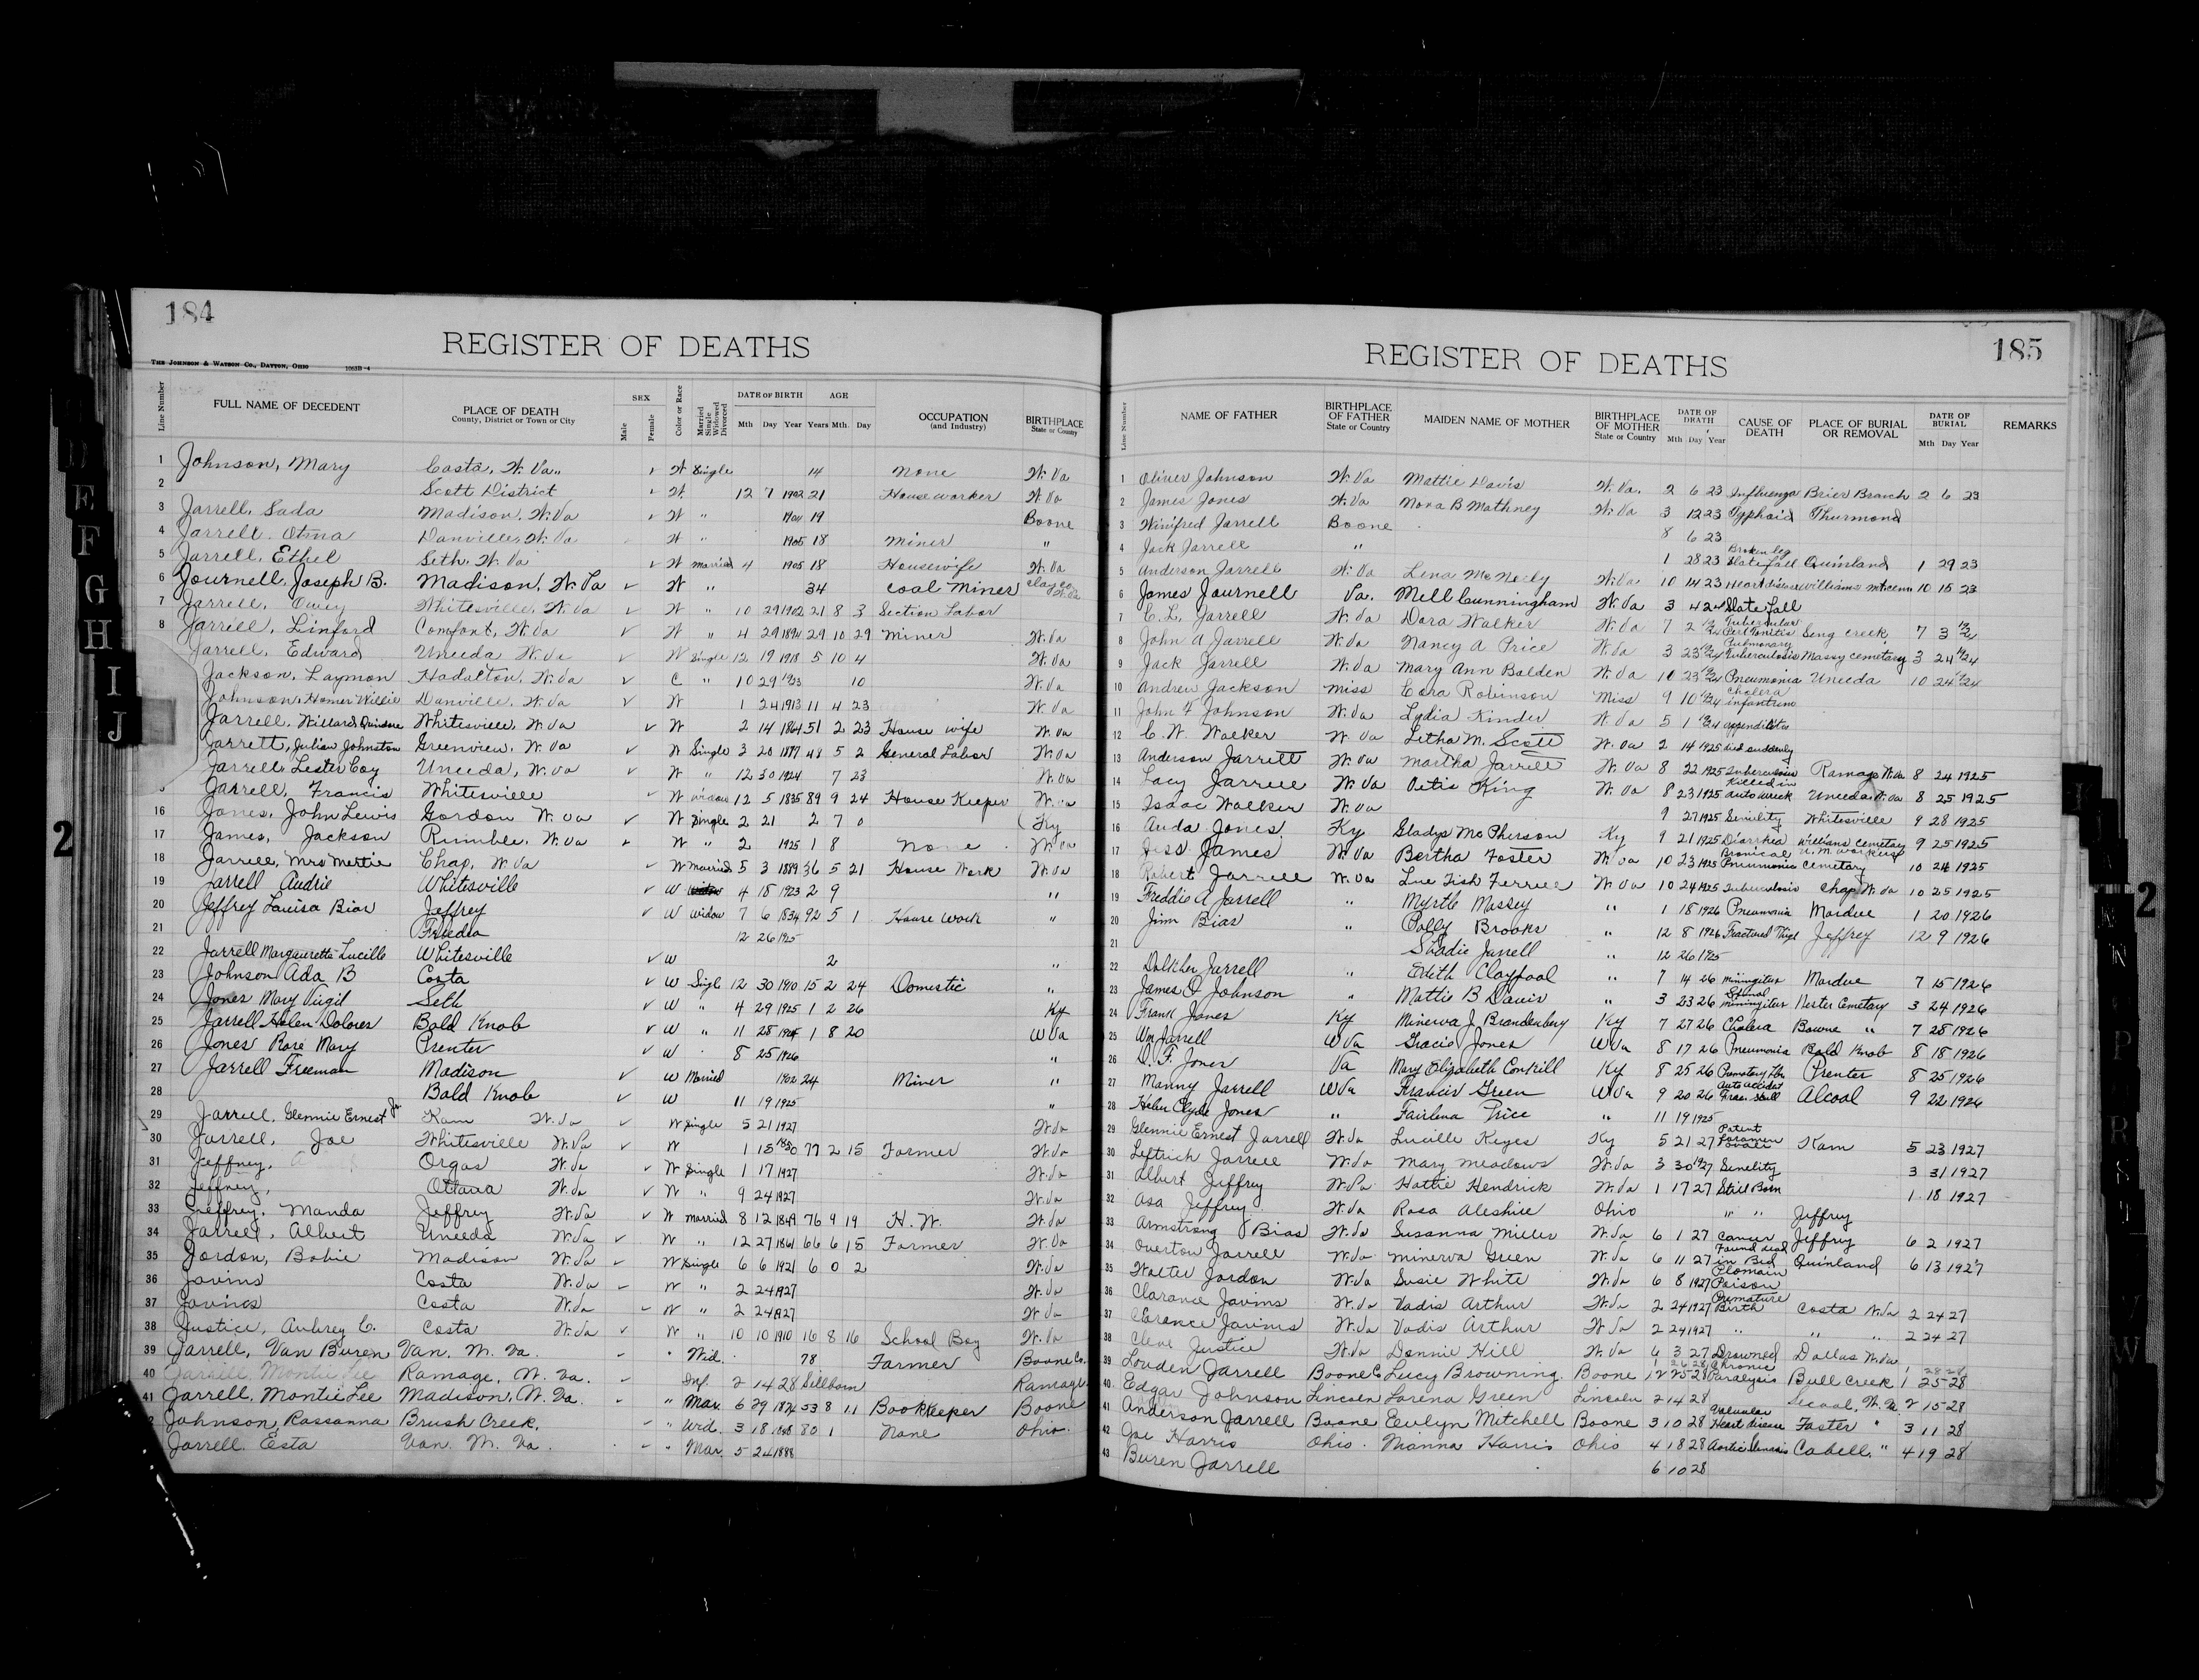 184
REGISTER OF DEATHS
THE JOHNSON & WATSON CO., DAYTON, OHIO 1053B-4
Line Number FULL NAME OF DECEDENT PLACE OF DEATH County, District or Town or City SEX Male Female Color or Race Married Single Widowed Divorced DATE OF BIRTH Mth Day Year AGE Years Mth. Day OCCUPATION (and Industry) BIRTHPLACE State or County
1 Johnson, Mary Costa, W. Va. ✓ W Single 14 None W. Va
2 Scott District ✓ W 12 7 1902 21 Houseworker W. Va
3 Jarrell, Sada Madison, W. Va ✓ W " 1904 19 Boone
4 Jarrell, Otma Danville, W. Va W " 1905 18 Miner "
5 Jarrell, Ethel Seth, W. Va ✓ W married 4 1905 18 Housewife W. Va
6 Journell, Joseph B. Madison, W. Va ✓ W " 34 Coal Miner Clay Co W. Va
7 Jarrell, Whitesville, W. Va ✓ W " 10 29 1902 21 8 3 Section Labor
8 Jarrell, Linford Comfort, W. Va ✓ W " 4 29 1894 29 10 29 Miner W. Va
Jarrell, Edward Uneeda W. Va ✓ W Single 12 19 1918 5 10 4 W. Va
Jackson, Laymon Hadalton, W. Va ✓ C " 10 29 1923 10 W. Va
Johnson, Homer Willie Danville, W. Va ✓ W 1 24 1913 11 4 23 W. Va
Jarrell, Willard Whitesville, W. Va ✓ W 2 14 1864 51 2 23 House wife W. Va
Jarrett, Julian Johnston Greenview, W. Va ✓ W Single 3 20 1877 48 5 2 General Labor W. Va
Jarrell, Lester Coy Uneeda, W. Va ✓ W " 12 30 1924 7 23 W. Va
Jarrell, Francis Whitesville ✓ W widow 12 5 1835 89 9 24 House Keeper W. Va
16 Jones, John Lewis Gordon W. Va ✓ W Single 2 21 2 7 0 Ky
17 James, Jackson Rumble, W. Va ✓ W " 2 1925 1 8 None W. Va
18 Jarrell, Mrs Mettie Chap, W Va ✓ W Married 5 3 1889 36 5 21 House Work W. Va
19 Jarrell Audrie Whitesville ✓ W 4 18 1923 2 9 "
20 Jeffrey Louisa Bias Jeffrey ✓ W Widow 7 6 1834 92 5 1 House work "
21 12 26 1925
22 Jarrell Margauretta Lucille Whitesville ✓ W 2 "
23 Johnson Ada B Costa ✓ W Singl 12 30 1910 15 2 24 Domestic "
24 Jones Mary Virgil Seth ✓ W " 4 29 1925 1 2 26 Ky
25 Jarrell Helen Dolores Bald Knob ✓ W " 11 28 1 8 20 W Va
26 Jones Rose Mary Prenter ✓ W 8 25 1926 "
27 Jarrell Freeman Madison ✓ W Married 1902 24 Miner "
28 Bald Knob ✓ W 11 19 1925 "
29 Jarrell, Glennie Ernest Jr Kam W. Va ✓ W Single 5 21 1927 W. Va
30 Jarrell, Joe Whitesville W. Va ✓ W 1 15 1850 77 2 15 Farmer W. Va
31 Jeffrey, Orgas W. Va ✓ W Single 1 17 1927 W. Va
32 Jeffrey, Ottawa W. Va ✓ W " 9 24 1927 W. Va
33 Jeffrey, Manda Jeffrey W. Va ✓ W married 8 12 1849 76 9 19 H. W. W. Va
34 Jarrell, Albert Uneeda W. Va ✓ W " 12 27 1861 66 6 15 Farmer W. Va
35 Jordon, Bobie Madison W. Va ✓ W Single 6 6 1921 6 0 2 W. Va
36 Javins Costa W. Va ✓ W " 2 24 1927 W. Va
37 Javins Costa W. Va ✓ W " 2 24 1927 W Va
38 Justice, Aubrey C. Costa W. Va ✓ W " 10 10 1910 16 8 16 School Boy W. Va
39 Jarrell, Van Buren Van, W. Va. ✓ " Wid. 78 Farmer Boone Co.
40 Jarrell Montie Lee Ramage, W. Va. ✓ Inf. 2 14 28 Stillborn Ramage
41 Jarrell, Montie Lee Madison, W. Va. ✓ " Mar. 6 29 1874 53 8 11 Bookkeeper Boone
Johnson, Rossanna Brush Creek, ✓ " Wid. 3 18 1848 80 1 None Ohio.
Jarrell, Esta Van, W. Va. ✓ " Mar. 5 24 1888
185
REGISTER OF DEATHS
Line Number NAME OF FATHER BIRTHPLACE OF FATHER State or Country MAIDEN NAME OF MOTHER BIRTHPLACE OF MOTHER State or Country DATE OF DEATH Mth Day Year CAUSE OF DEATH PLACE OF BURIAL OR REMOVAL DATE OF BURIAL Mth Day Year REMARKS
1 Oliver Johnson W. Va Mattie Davis W. Va. 2 6 23 Influenza Brier Branch 2 6 23
2 James Jones W. Va Nora B Mathney W. Va 3 12 23 Typhoid Thurmond
3 Winifred Jarrell Boone 8 6 23
4 Jack Jarrell " 1 28 23 Broken leg Slate fall Quinland 1 29 23
5 Anderson Jarrell W. Va Lena McNeely W. Va 10 14 23 Heart disease Williams mt cem 10 15 23
6 James Journell Va. Mell Cunningham W. Va 3 4 24 Slate fall
7 C. L. Jarrell W. Va Dora Walker W. Va 7 2 Tubercular Peritonitis Seng Creek 7 3
8 John A Jarrell W. Va Nancy A Price W. Va 3 23 Pulmonary Tuberculosis Massy cemetary 3 24
9 Jack Jarrell W. Va Mary Ann Bolden W. Va 10 23 Pneumonia Uneeda 10 24
10 Andrew Jackson Miss Cora Robinson Miss 9 10 Cholera infantum
11 John F Johnson W. Va Lydia Kinder W. Va 5 1 appendicites
12 C. W. Walker W. Va Letha M. Scott W. Va 2 14 1925 died suddenly
13 Anderson Jarrett W. Va Martha Jarrett W. Va 8 22 1925 Tuberculosis Ramage W. Va 8 24 1925
14 Lacy Jarrell W. Va Ortis King W. Va 8 23 1925 Killed in auto wreck Uneeda W. Va 8 25 1925
15 Isaac Walker W. Va 9 27 1925 Senility Whitesville 9 28 1925
16 Auda Jones Ky Gladys McPherson Ky 9 21 1925 Diarrhea Williams Cemetary 9 25 1925
17 Jess James W. Va Bertha Foster W. Va 10 23 1925 Bronical Pneumonia U. M. workers cemetary 10 24 1925
18 Robert Jarrell W. Va Lue Tish Ferrell W. Va 10 24 1925 Tuberculosis Chap W. Va 10 25 1925
19 Freddie A Jarrell " Myrtle Massey " 1 18 1926 Pneumonia Mardue 1 20 1926
20 Jim Bias " Polly Brooks " 12 8 1926 Fractured Thigh Jeffrey 12 9 1926
21 Jarrell " 12 26 1925
22 Jarrell " Edith Claypool " 7 14 26 miningites Mardue 7 15 1926
23 James O Johnson " Mattie B Davis " 3 23 26 Spinal miningites Hester Cemetary 3 24 1926
24 Frank Jones Ky Minerva J Brandenbery Ky 7 27 26 Cholera Bowne " 7 28 1926
25 Wm Jarrell W Va Gracie Jones W Va 8 17 26 Pneumonia Bald Knob 8 18 1926
26 D. F. Jones Va Mary Elizabeth Conkrill Ky 8 25 26 Prenter 8 25 1926
27 Manny Jarrell W Va Francis Green W Va 9 20 26 Auto accidet Frac. skull Alcoal 9 22 1926
28 Helen Clyde Jones " Fairlena Price " 11 19 1925
29 Glennie Ernest Jarrell W. Va Lucille Keyes Ky 5 21 27 Patent Foramen ovale Kam 5 23 1927
30 Leftrich Jarrell W. Va Mary Meadows W. Va 3 30 1927 Senelity 3 31 1927
31 Albert Jeffrey W. Va Hattie Hendrick W. Va 1 17 27 Still Born 1 18 1927
32 Asa Jeffrey W. Va Rosa Aleshire Ohio " " Jeffrey
33 Armstrong Bias W. Va Susanna Miller W. Va 6 1 27 Cancer Jeffrey 6 2 1927
34 Overton Jarrell W. Va Minerva Green W. Va 6 11 27 Found dead in Bed Quinland 6 13 1927
35 Walter Jordon W. Va Susie White W. Va 6 8 1927 Ptomain Poison
36 Clarance Javins W. Va Vadis Arthur W. Va 2 24 1927 Premature Birth Costa W. Va 2 24 27
37 Clarence Javins W. Va Vadis Arthur W Va 2 24 1927 " " " 2 24 27
38 Cleve Justice W. Va Donnie Hill W. Va 6 3 27 Drowned Dallas W. Va
39 Louden Jarrell Boone C Lucy Browning Boone 1 25 28 Chronic Paralysis Bull Creek 1 25 28
40 Edgar Johnson Lincoln Lorena Green Lincoln 2 14 28 Secoal, W. Va. 2 15 28
41 Anderson Jarrell Boone Evelyn Mitchell Boone 3 10 28 Valvular Heart disease Foster " 3 11 28
42 Joe Harris Ohio. Nianna Harris Ohio 4 18 28 Aortic Stenosis Cabell " 4 19 28
43 Buren Jarrell 6 10 28
E
F
G
H
I
J
2
2